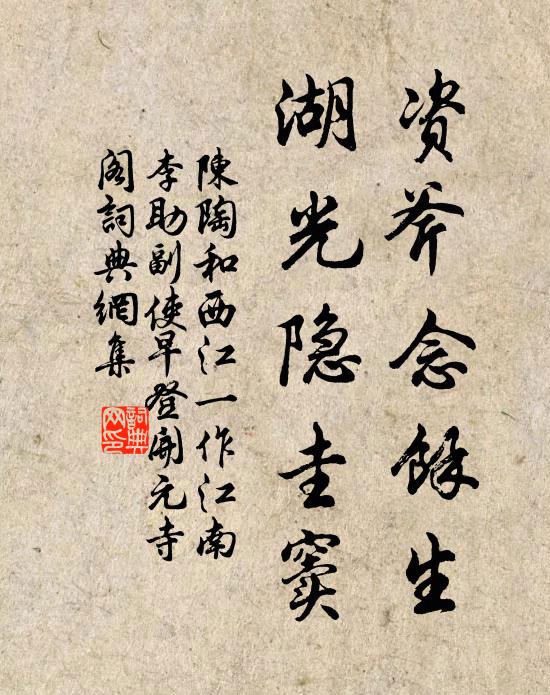 资斧念餘生
湖光隐圭窦
陳陶和西江一作江南
李助副使早登開元寺
閣詞典網集
詞典
网印